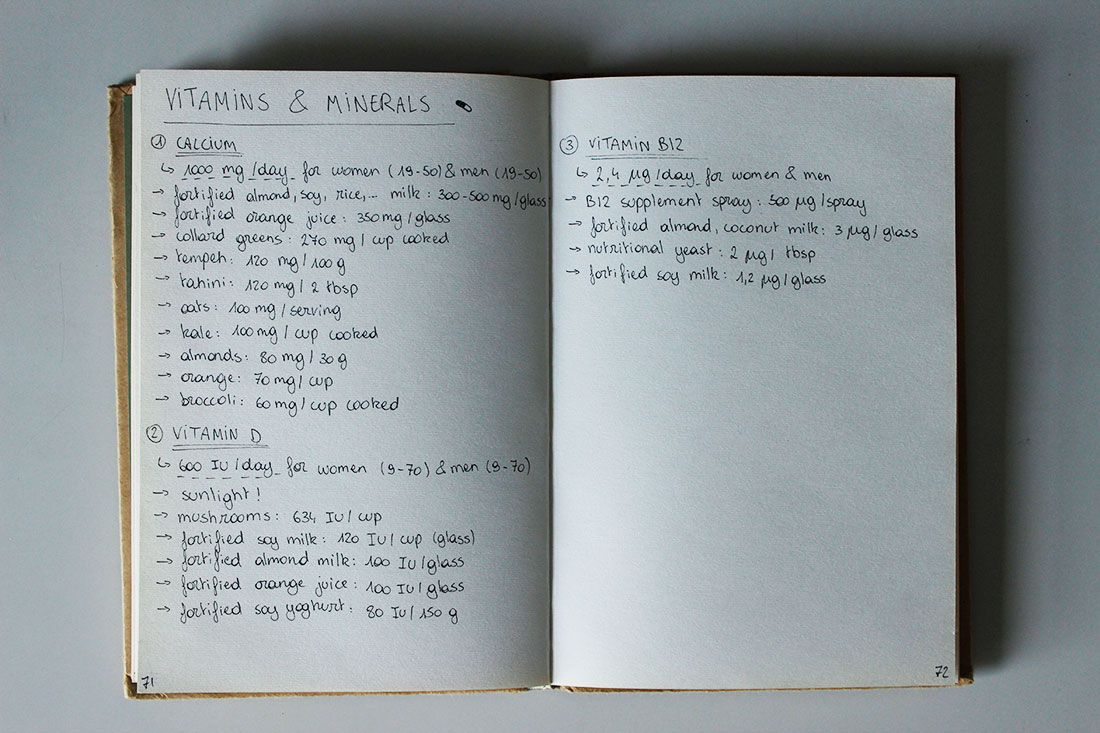 VITAMINS & MINERALS
① CALCIUM
↳ 1000 mg /day for women (19-50) & men (19-50)
→ fortified almond, soy, rice,... milk : 300-500 mg/glass
→ fortified orange juice : 350 mg / glass
→ collard greens : 270 mg / cup cooked
→ tempeh : 120 mg / 100 g
→ tahini : 120 mg / 2 tbsp
→ oats : 100 mg / serving
→ kale : 100 mg / cup cooked
→ almonds : 80 mg / 30 g
→ orange : 70 mg / cup
→ broccoli : 60 mg / cup cooked
② VITAMIN D
↳ 600 IU /day for women (9-70) & men (9-70)
→ sunlight !
→ mushrooms : 634 IU / cup
→ fortified soy milk : 120 IU / cup (glass)
→ fortified almond milk : 100 IU / glass
→ fortified orange juice : 100 IU / glass
→ fortified soy yoghurt : 80 IU / 150 g
71
③ VITAMIN B12
↳ 2,4 µg /day for women & men
→ B12 supplement spray : 500 µg / spray
→ fortified almond, coconut milk : 3 µg / glass
→ nutritional yeast : 2 µg / tbsp
→ fortified soy milk : 1,2 µg / glass
72